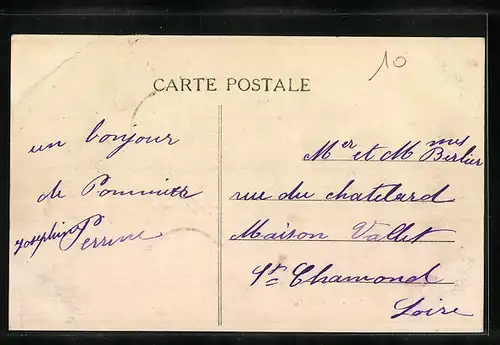 10
CARTE POSTALE
un bonjour
de Pommiers
Josephine Perrine
Mer et Mmes Berlier
rue du chatelard
Maison Vallet
St Chamond
Loire